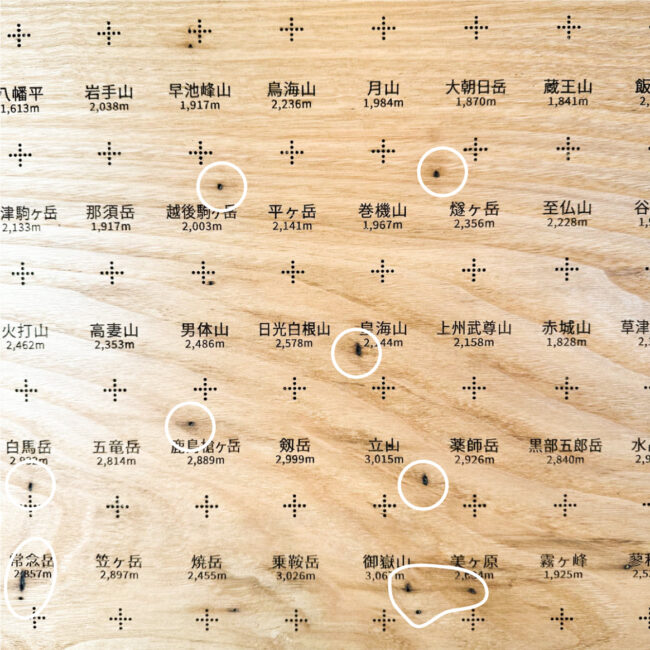 八幡平 岩手山 早池峰山 鳥海山 月山 大朝日岳 蔵王山 飯
1,613m 2,038m 1,917m 2,236m 1,984m 1,870m 1,841m 2,
津駒ヶ岳 那須岳 越後駒ヶ岳 平ヶ岳 巻機山 燧ヶ岳 至仏山 谷
2,133m 1,917m 2,003m 2,141m 1,967m 2,356m 2,228m 1,9
火打山 高妻山 男体山 日光白根山 皇海山 上州武尊山 赤城山 草津
2,462m 2,353m 2,486m 2,578m 2,144m 2,158m 1,828m 2,
白馬岳 五竜岳 鹿島槍ヶ岳 剱岳 立山 薬師岳 黒部五郎岳 水
2,814m 2,889m 2,999m 3,015m 2,926m 2,840m 2,9
常念岳 笠ヶ岳 焼岳 乗鞍岳 御嶽山 美ヶ原 霧ヶ峰 蓼科
2,857m 2,897m 2,455m 3,026m 1,925m 2,5